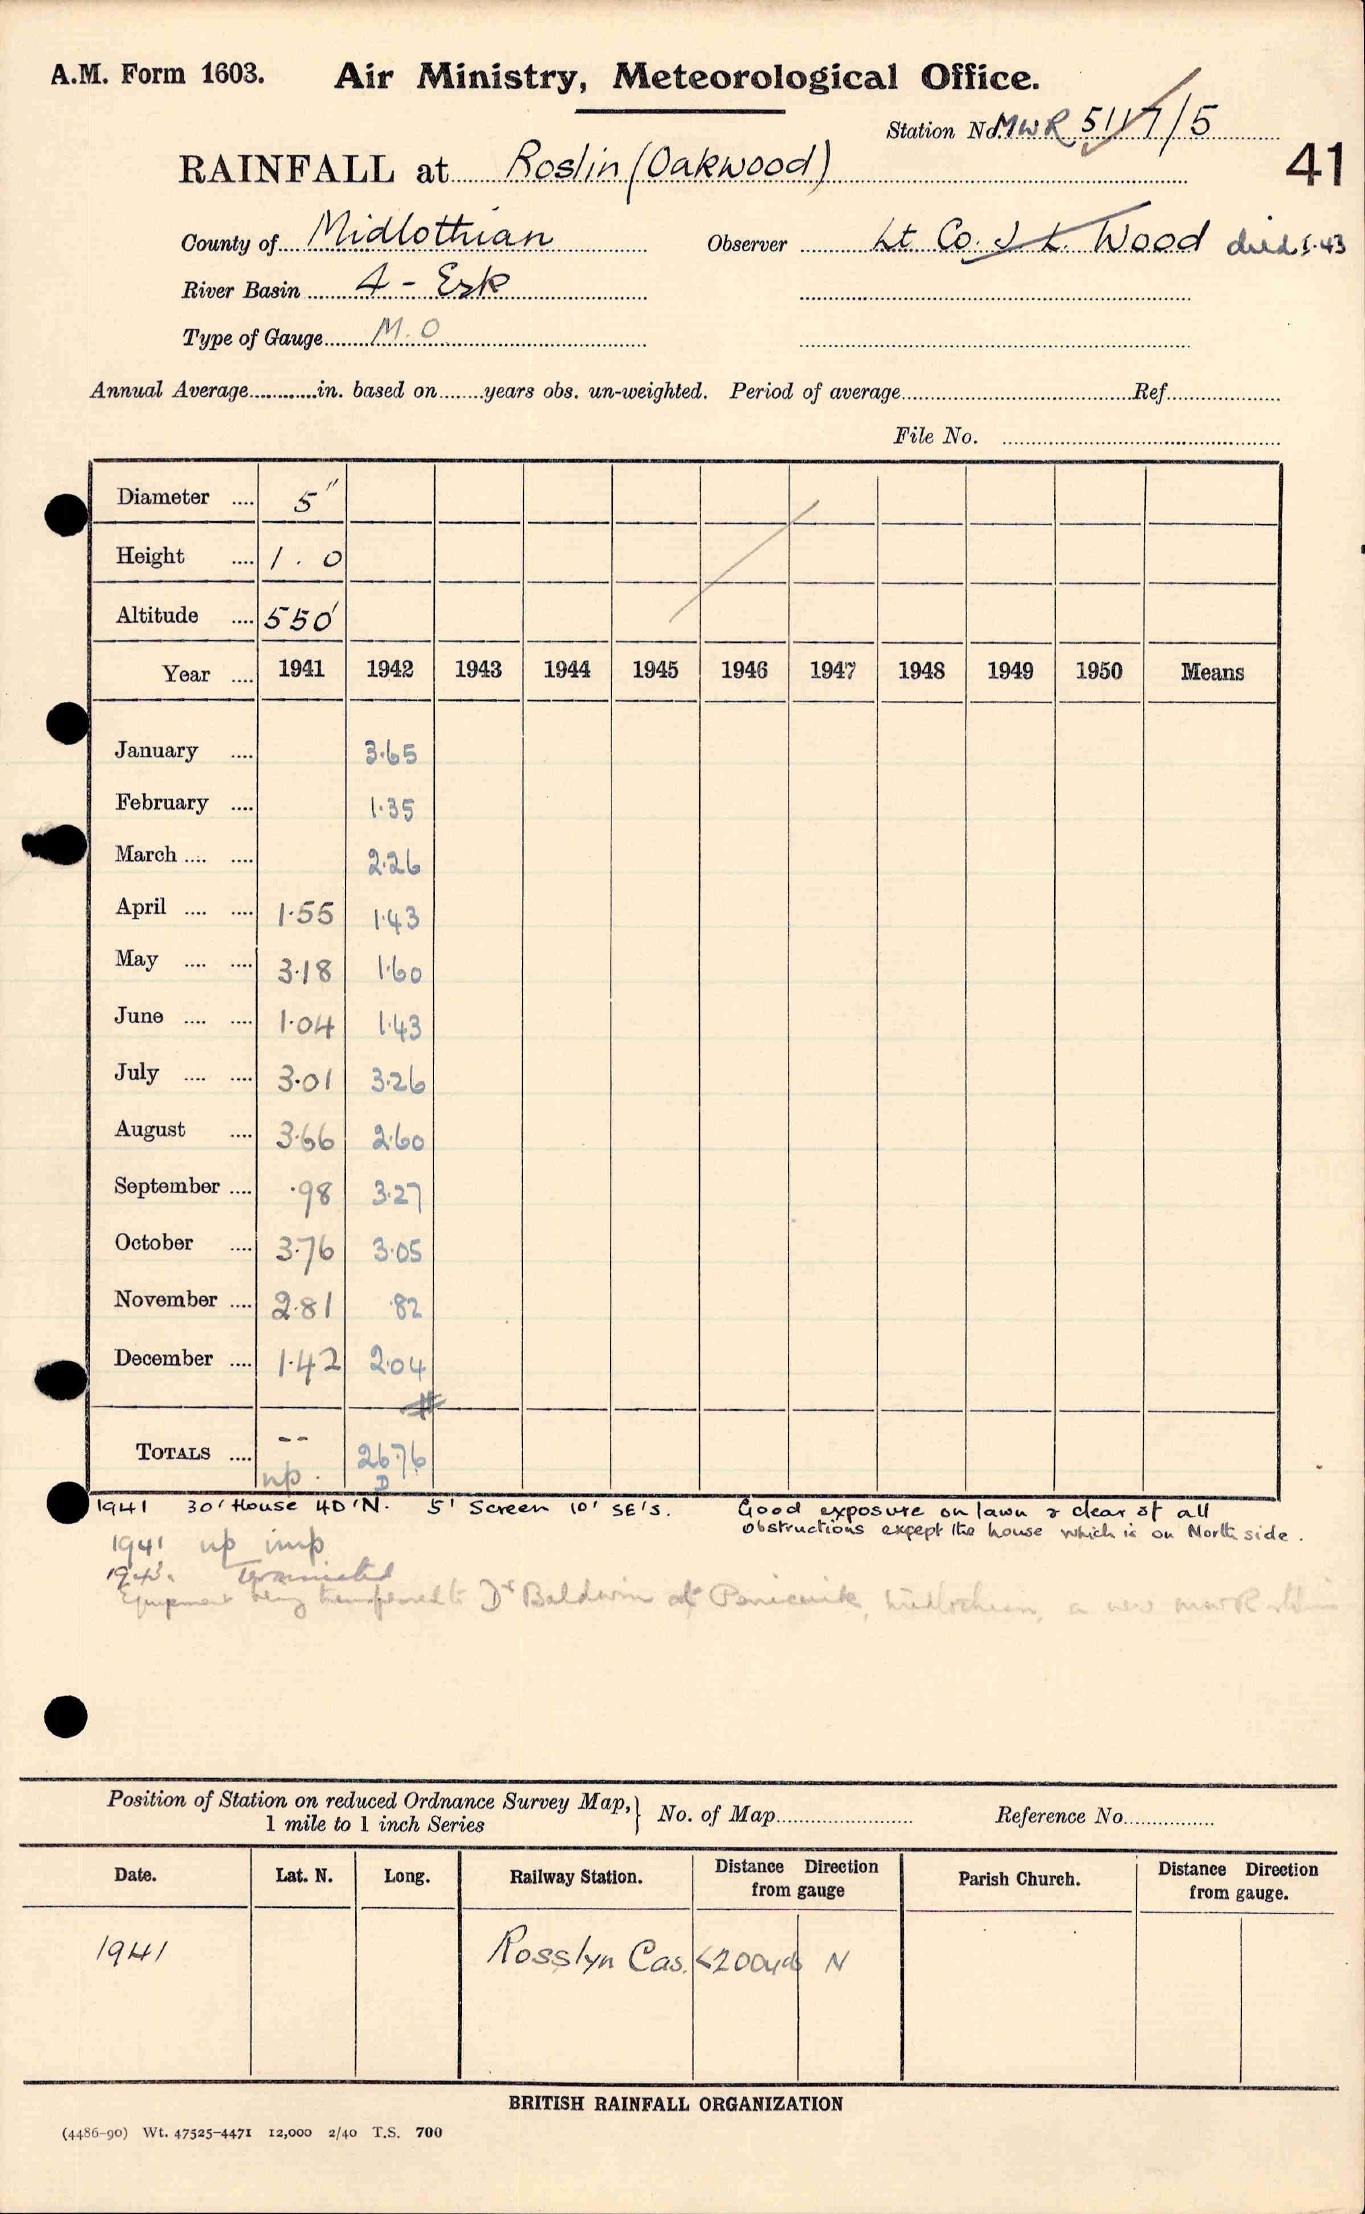 A.M. Form 1603. Air Ministry, Meteorological Office.
Station No. MWR 5117/5
41
RAINFALL at Roslin (Oakwood)
County of Midlothian Observer Lt. Co. J. L. Wood died 1.43
River Basin 4 - Esk
Type of Gauge M.O
Annual Average............in. based on........years obs. un-weighted. Period of average........................Ref...............
File No. ...............
Diameter .... 5"
Height .... 1 . 0
Altitude .... 550'
Year .... 1941 1942 1943 1944 1945 1946 1947 1948 1949 1950 Means
January .... 3.65
February .... 1.35
March .... .... 2.26
April .... .... 1.55 1.43
May .... .... 3.18 1.60
June .... .... 1.04 1.43
July .... .... 3.01 3.26
August .... 3.66 2.60
September .... .98 3.27
October .... 3.76 3.05
November .... 2.81 .82
December .... 1.42 2.04
#
TOTALS .... -- 26.76
np. D
1941 30' House 40' N. 5' Screen 10' SE's. Good exposure on lawn & clear of all
obstructions except the house which is on North side.
1941 np imp
1943. Terminated
Equipment being transferred to Dr Baldwin at Penicuik, Midlothian, a new MWR
Position of Station on reduced Ordnance Survey Map, } No. of Map............... Reference No...............
1 mile to 1 inch Series
Date. Lat. N. Long. Railway Station. Distance Direction from gauge Parish Church. Distance Direction from gauge.
1941 Rosslyn Cas. <200yds N
BRITISH RAINFALL ORGANIZATION
(4486-90) Wt. 47525-4471 12,000 2/40 T.S. 700